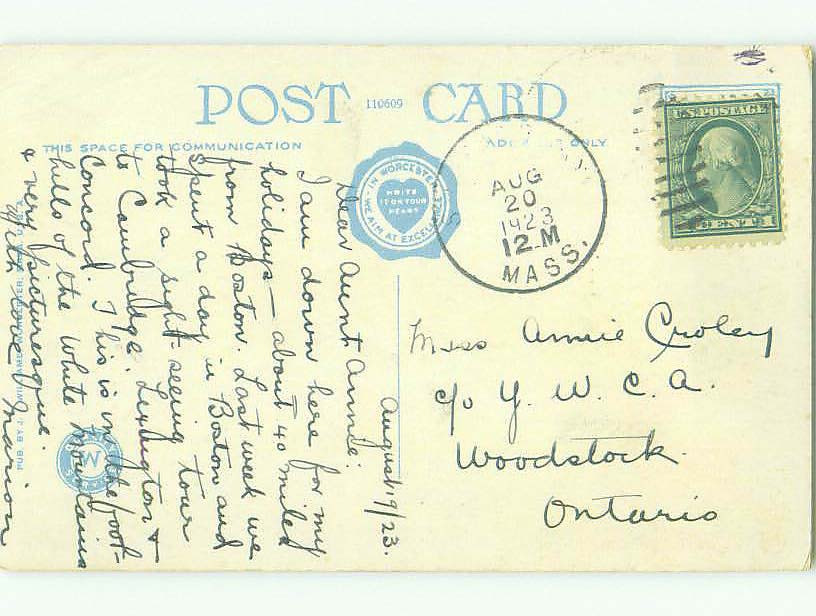 POST CARD
110609
THIS SPACE FOR COMMUNICATION
ONLY
IN WORCESTER
WRITE
IT ON YOUR
HEART
WE AIM AT
AUG
20
1923
12 M
MASS.
U.S. POSTAGE
1 CENT 1
August 19/23.
Dear Aunt Annie:
I am down here for my
holidays — about 40 miles
from Boston. Last week we
spent a day in Boston and
took a sight-seeing tour
to Cambridge, Lexington &
Concord. This is in the foot-
hills of the White Mountains
& very picturesque.
With love Marion
Miss Annie Croley
c/o Y. W. C. A.
Woodstock
Ontario
PUB. BY J.
W